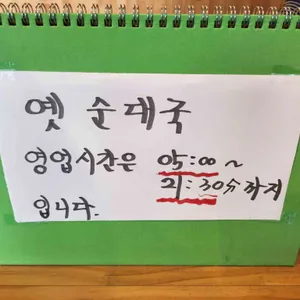 옛 순대국
영업시간은 05:00~
21:30分까지
입니다.